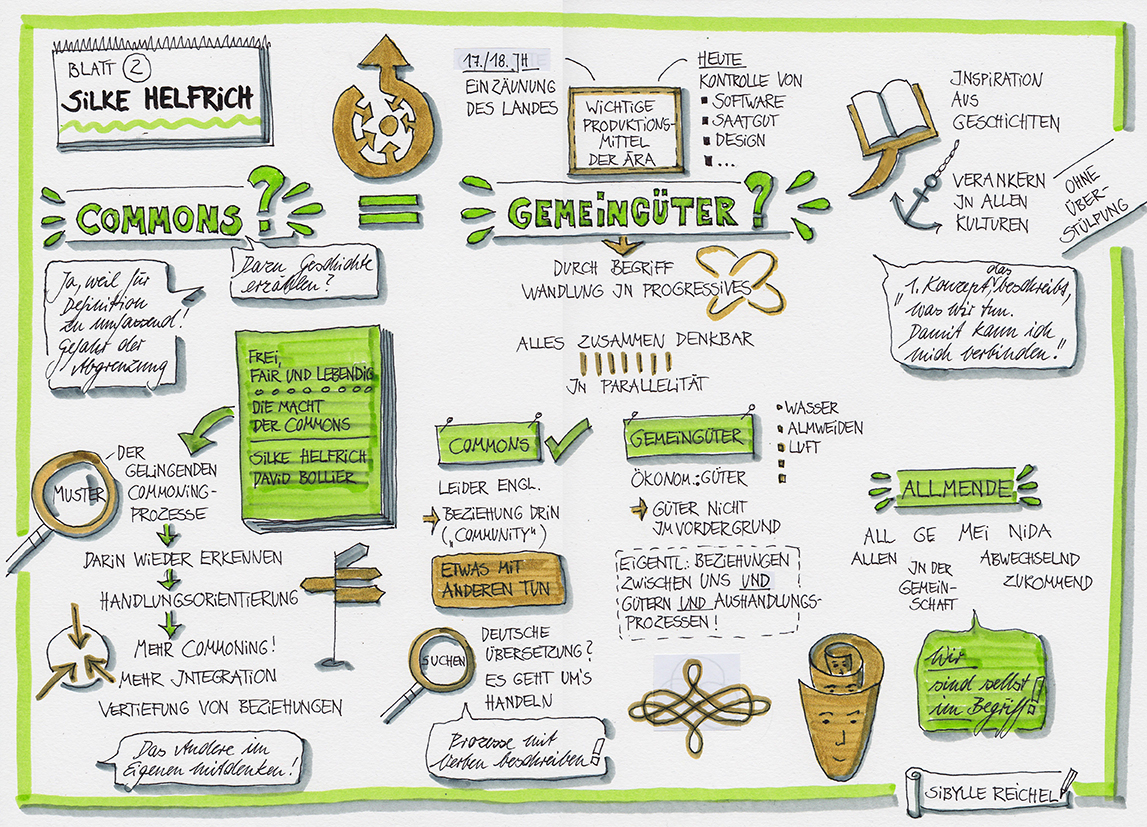 BLATT 2
SILKE HELFRICH
17./18. JH
EINZÄUNUNG
DES LANDES
WICHTIGE
PRODUKTIONS-
MITTEL
DER ÄRA
HEUTE
KONTROLLE VON
SOFTWARE
SAATGUT
DESIGN
...
INSPIRATION
AUS
GESCHICHTEN
VERANKERN
IN ALLEN
KULTUREN
OHNE
ÜBER-
STÜLPUNG
COMMONS?
=
GEMEINGÜTER?
Ja, weil für
Definition
zu umfassend!
Gefahr der
Abgrenzung
Dazu Geschichte
erzählen?
DURCH BEGRIFF
WANDLUNG IN PROGRESSIVES
ALLES ZUSAMMEN DENKBAR
IN PARALLELITÄT
"1. Konzept, das beschreibt,
was wir tun.
Damit kann ich
mich verbinden."
FREI,
FAIR UND LEBENDIG
DIE MACHT
DER COMMONS
SILKE HELFRICH
DAVID BOLLIER
MUSTER
DER
GELINGENDEN
COMMONING-
PROZESSE
DARIN WIEDER ERKENNEN
HANDLUNGSORIENTIERUNG
MEHR COMMONING!
MEHR INTEGRATION
VERTIEFUNG VON BEZIEHUNGEN
Das Andere im
Eigenen mitdenken!
COMMONS
LEIDER ENGL.
BEZIEHUNG DRIN
("COMMUNITY")
ETWAS MIT
ANDEREN TUN
SUCHEN
DEUTSCHE
ÜBERSETZUNG?
ES GEHT UM'S
HANDELN
Prozesse mit
Verben beschreiben!
GEMEINGÜTER
WASSER
ALMWEIDEN
LUFT
ÖKONOM.: GÜTER
GÜTER NICHT
IM VORDERGRUND
EIGENTL.: BEZIEHUNGEN
ZWISCHEN UNS UND
GÜTERN UND AUSHANDLUNGS-
PROZESSEN!
ALLMENDE
ALL GE MEI NIDA
ALLEN
IN DER
GEMEIN-
SCHAFT
ABWECHSELND
ZUKOMMEND
Wir
sind selbst
im Begriff!
SIBYLLE REICHEL